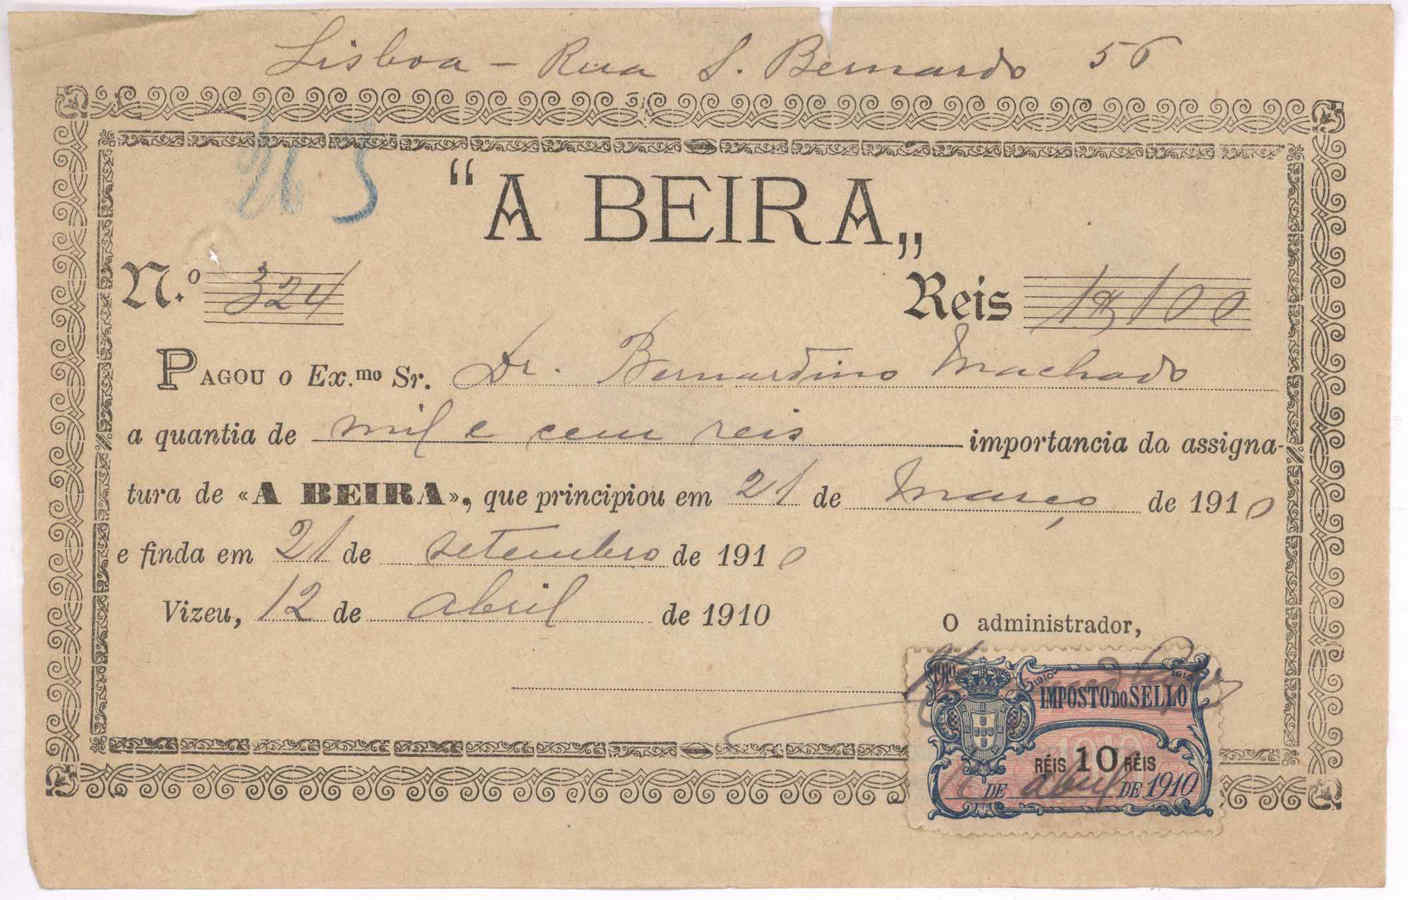 Lisboa - Rua S. Bernardo 56
"A BEIRA„
N.º 324 Reis 1$100
PAGOU o Ex.mo Sr. Dr. Bernardino Machado
a quantia de mil e cem reis importancia da assigna-
tura de «A BEIRA», que principiou em 21 de Março de 1910
e finda em 21 de setembro de 1910
Vizeu, 12 de abril de 1910
O administrador,
1910 1910 1910
IMPOSTO DO SELLO
RÉIS 10 RÉIS
DE abril DE 1910